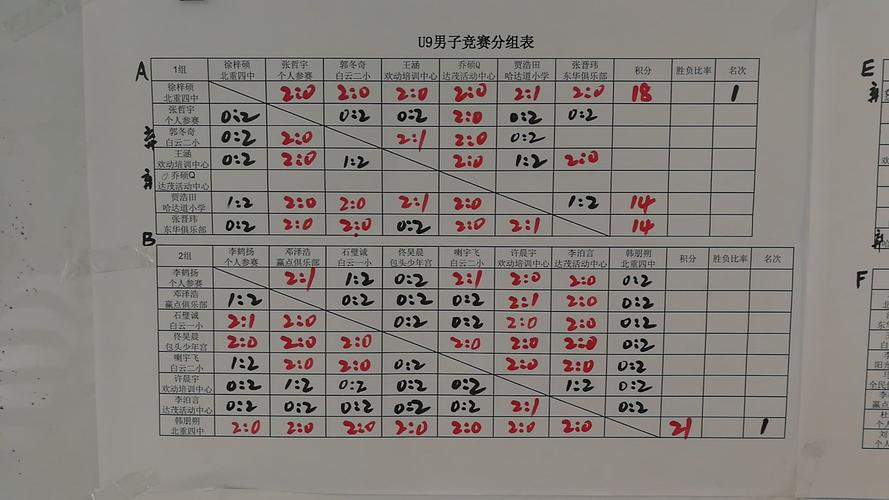 U9男子竞赛分组表
A 1组 徐梓硕 北重四中 张哲宇 个人参赛 郭冬奇 白云二小 王涵 欢动培训中心 乔硕Q 达茂活动中心 贾浩田 哈达道小学 张晋玮 东华俱乐部 积分 胜负比率 名次
徐梓硕 北重四中 2:0 2:0 2:0 2:0 2:1 2:0 18 1
张哲宇 个人参赛 0:2 0:2 0:2 2:0 0:2 0:2
弃 郭冬奇 白云二小 0:2 2:0 2:1 2:0 0:2
王涵 欢动培训中心 0:2 2:0 1:2 2:0 1:2 2:0
弃 乔硕Q 达茂活动中心
贾浩田 哈达道小学 1:2 2:0 2:0 2:1 2:0 1:2 14
张晋玮 东华俱乐部 0:2 2:0 2:0 0:2 2:0 2:1 14
B 2组 李鹤扬 个人参赛 邓泽浩 赢点俱乐部 石璧诚 白云一小 佟昊晨 包头少年宫 喇宇飞 白云二小 许晨宇 欢动培训中心 李泊言 达茂活动中心 韩朋朔 北重四中 积分 胜负比率 名次
李鹤扬 个人参赛 2:1 1:2 0:2 2:1 2:0 2:0 0:2
邓泽浩 赢点俱乐部 1:2 0:2 0:2 0:2 2:1 2:0 0:2
石璧诚 白云一小 2:1 2:0 0:2 0:2 2:0 2:0 0:2
佟昊晨 包头少年宫 2:0 2:0 2:0 2:0 2:0 2:0 0:2
喇宇飞 白云二小 1:2 2:0 2:0 0:2 2:0 2:0 0:2
许晨宇 欢动培训中心 0:2 1:2 0:2 0:2 0:2 1:2 0:2
李泊言 达茂活动中心 0:2 0:2 0:2 0:2 0:2 2:1 0:2
韩朋朔 北重四中 2:0 2:0 2:0 2:0 2:0 2:0 2:0 21 1
E
F